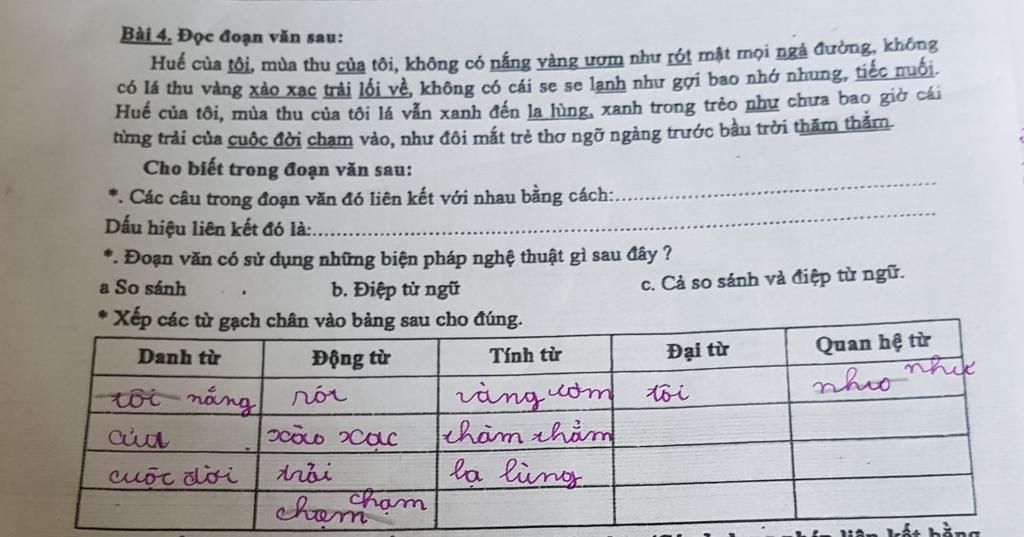 Bài 4. Đọc đoạn văn sau:
Huế của tôi, mùa thu của tôi, không có nắng vàng ươm như rót mật mọi ngả đường, không
có lá thu vàng xào xạc trải lối về, không có cái se se lạnh như gợi bao nhớ nhung, tiếc nuối.
Huế của tôi, mùa thu của tôi lá vẫn xanh đến lạ lùng, xanh trong trẻo như chưa bao giờ cái
từng trải của cuộc đời chạm vào, như đôi mắt trẻ thơ ngỡ ngàng trước bầu trời thăm thẳm.
Cho biết trong đoạn văn sau:
*. Các câu trong đoạn văn đó liên kết với nhau bằng cách:
Dấu hiệu liên kết đó là:
*. Đoạn văn có sử dụng những biện pháp nghệ thuật gì sau đây ?
a So sánh b. Điệp từ ngữ c. Cả so sánh và điệp từ ngữ.
* Xếp các từ gạch chân vào bảng sau cho đúng.
Danh từ Động từ Tính từ Đại từ Quan hệ từ
tôi nắng rót vàng ươm tôi như như
của xào xạc thăm thẳm
cuộc đời trải lạ lùng
chạm chạm